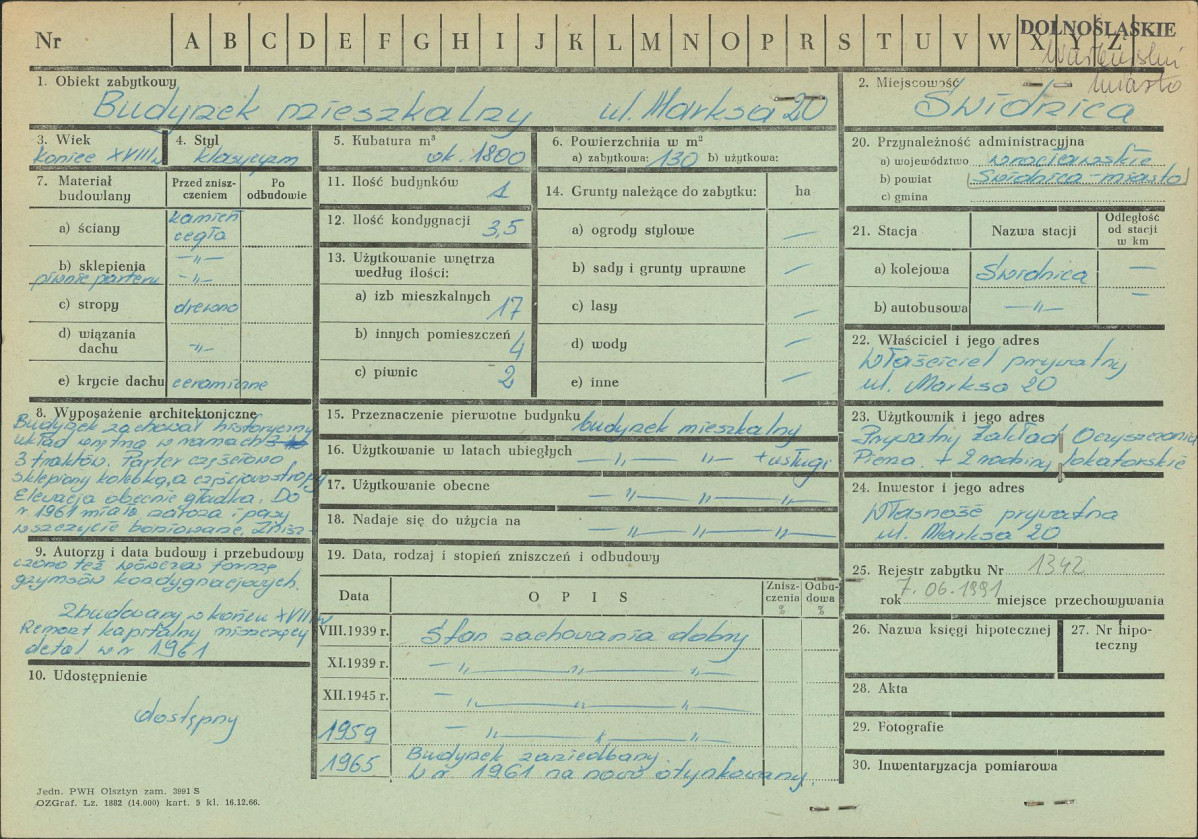 Nr A B C D E F G H I J K L M N O P R S T U V W X Y Z DOLNOŚLĄSKIE
miasto
1. Obiekt zabytkowy
Budynek mieszkalny ul. Marksa 20
2. Miejscowość
Świdnica
3. Wiek
koniec XVIII w
4. Styl
klasycyzm
5. Kubatura m³
ok. 1800
6. Powierzchnia w m²
a) zabytkowa: 130 b) użytkowa:
20. Przynależność administracyjna
a) województwo wrocławskie
b) powiat Świdnica-miasto
c) gmina
7. Materiał budowlany
Przed znisz-
czeniem
Po
odbudowie
a) ściany kamień
cegła
b) sklepienia -"-
piwnic parteru -"-
c) stropy drewno
d) wiązania
dachu -"-
e) krycie dachu ceramiczne
11. Ilość budynków 1
12. Ilość kondygnacji 3,5
13. Użytkowanie wnętrza
według ilości:
a) izb mieszkalnych 17
b) innych pomieszczeń 4
c) piwnic 2
14. Grunty należące do zabytku: ha
a) ogrody stylowe —
b) sady i grunty uprawne —
c) lasy —
d) wody —
e) inne —
21. Stacja Nazwa stacji Odległość
od stacji
w km
a) kolejowa Świdnica —
b) autobusowa -"- —
22. Właściciel i jego adres
Właściciel prywatny
ul. Marksa 20
8. Wyposażenie architektoniczne
Budynek zachował historyczny
układ wnętrza w ramach
3 traktów. Parter częściowo
sklepiony kolebką, a częściowo stropy
Elewacja obecnie gładka. Do
r 1961 miała naroża i pasy
w szczycie boniowane. Znisz-
9. Autorzy i data budowy i przebudowy
czono też wówczas formę
gzymsów kondygnacjowych.
Zbudowany w końcu XVIII w
Remont kapitalny niszczący
detal w r 1961
10. Udostępnienie
dostępny
15. Przeznaczenie pierwotne budynku budynek mieszkalny
16. Użytkowanie w latach ubiegłych -"- -"- + usługi
17. Użytkowanie obecne -"- -"- -"-
18. Nadaje się do użycia na -"- -"- -"-
19. Data, rodzaj i stopień zniszczeń i odbudowy
Data OPIS Znisz-
czenia
% Odbu-
dowa
%
VIII.1939 r. Stan zachowania dobry
XI.1939 r. -"- -"- -"-
XII.1945 r. -"- -"- -"-
1959 -"- -"- -"-
1965 Budynek zaniedbany.
W r. 1961 na nowo otynkowany.
23. Użytkownik i jego adres
Prywatny Zakład Oczyszczania
Pierza. + 2 rodziny lokatorskie
24. Inwestor i jego adres
Własność prywatna
ul. Marksa 20
25. Rejestr zabytku Nr 1342
rok 7.06.1991 miejsce przechowywania
26. Nazwa księgi hipotecznej
27. Nr hipo-
teczny
28. Akta
29. Fotografie
30. Inwentaryzacja pomiarowa
Jedn. PWH Olsztyn zam. 3991 S
OZGraf. Lz. 1882 (14.000) kart. 5 kl. 16.12.66.